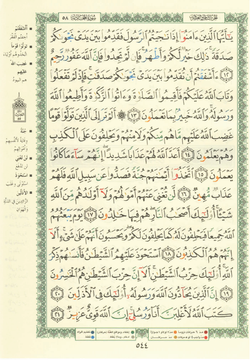 يَٰٓأَيُّهَا ٱلَّذِينَ ءَامَنُوٓا۟ إِذَا نَٰجَيْتُمُ ٱلرَّسُولَ فَقَدِّمُوا۟ بَيْنَ يَدَىْ نَجْوَىٰكُمْ
صَدَقَةً ذَٰلِكَ خَيْرٌ لَّكُمْ وَأَطْهَرُ فَإِن لَّمْ تَجِدُوا۟ فَإِنَّ ٱللَّهَ غَفُورٌ رَّحِيمٌ
﴿١٢﴾ ءَأَشْفَقْتُمْ أَن تُقَدِّمُوا۟ بَيْنَ يَدَىْ نَجْوَىٰكُمْ صَدَقَٰتٍ فَإِذْ لَمْ تَفْعَلُوا۟
وَتَابَ ٱللَّهُ عَلَيْكُمْ فَأَقِيمُوا۟ ٱلصَّلَوٰةَ وَءَاتُوا۟ ٱلزَّكَوٰةَ وَأَطِيعُوا۟ ٱللَّهَ
وَرَسُولَهُۥ وَٱللَّهُ خَبِيرٌۢ بِمَا تَعْمَلُونَ ﴿١٣﴾ أَلَمْ تَرَ إِلَى ٱلَّذِينَ تَوَلَّوْا۟ قَوْمًا
غَضِبَ ٱللَّهُ عَلَيْهِم مَّا هُم مِّنكُمْ وَلَا مِنْهُمْ وَيَحْلِفُونَ عَلَى ٱلْكَذِبِ
وَهُمْ يَعْلَمُونَ ﴿١٤﴾ أَعَدَّ ٱللَّهُ لَهُمْ عَذَابًا شَدِيدًا إِنَّهُمْ سَآءَ مَا كَانُوا۟
يَعْمَلُونَ ﴿١٥﴾ ٱتَّخَذُوٓا۟ أَيْمَٰنَهُمْ جُنَّةً فَصَدُّوا۟ عَن سَبِيلِ ٱللَّهِ فَلَهُمْ
عَذَابٌ مُّهِينٌ ﴿١٦﴾ لَّن تُغْنِىَ عَنْهُمْ أَمْوَٰلُهُمْ وَلَآ أَوْلَٰدُهُم مِّنَ ٱللَّهِ
شَيْـًٔا أُو۟لَٰٓئِكَ أَصْحَٰبُ ٱلنَّارِ هُمْ فِيهَا خَٰلِدُونَ ﴿١٧﴾ يَوْمَ يَبْعَثُهُمُ
ٱللَّهُ جَمِيعًا فَيَحْلِفُونَ لَهُۥ كَمَا يَحْلِفُونَ لَكُمْ وَيَحْسَبُونَ أَنَّهُمْ عَلَىٰ شَىْءٍ أَلَآ
إِنَّهُمْ هُمُ ٱلْكَٰذِبُونَ ﴿١٨﴾ ٱسْتَحْوَذَ عَلَيْهِمُ ٱلشَّيْطَٰنُ فَأَنسَىٰهُمْ ذِكْرَ
ٱللَّهِ أُو۟لَٰٓئِكَ حِزْبُ ٱلشَّيْطَٰنِ أَلَآ إِنَّ حِزْبَ ٱلشَّيْطَٰنِ هُمُ ٱلْخَٰسِرُونَ
﴿١٩﴾ إِنَّ ٱلَّذِينَ يُحَآدُّونَ ٱللَّهَ وَرَسُولَهُۥٓ أُو۟لَٰٓئِكَ فِى ٱلْأَذَلِّينَ ﴿٢٠﴾
كَتَبَ ٱللَّهُ لَأَغْلِبَنَّ أَنَا۠ وَرُسُلِىٓ إِنَّ ٱللَّهَ قَوِىٌّ عَزِيزٌ ﴿٢١﴾
٥٤٤